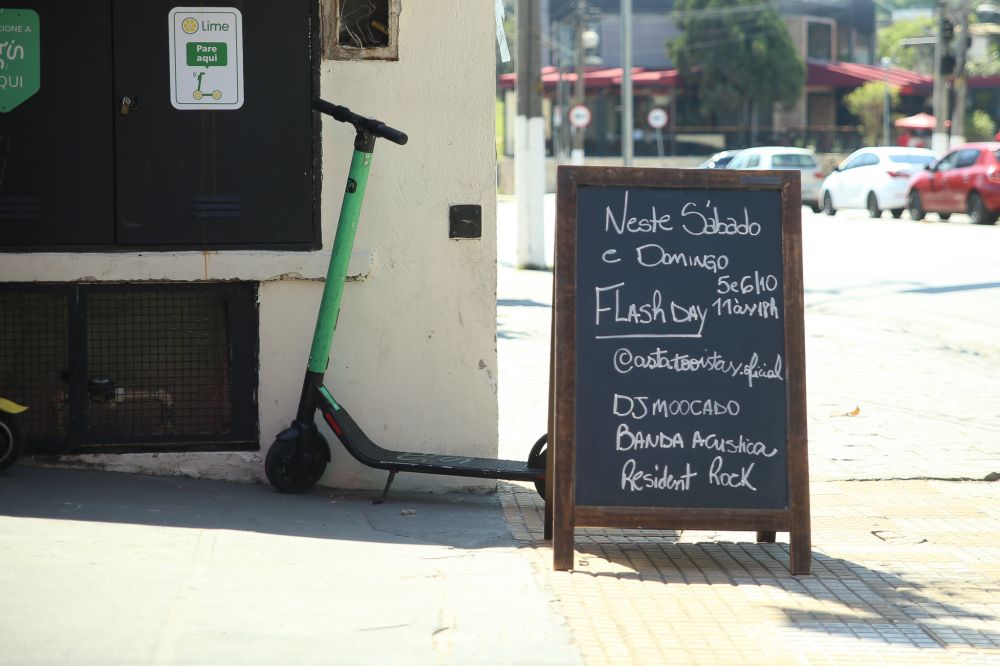 CIONE A
QUI
Lime
Pare
aqui
Neste Sábado
e Domingo
5e6/10
Flash Day
11às18h
@astatooistas.oficial
DJ MOOCADO
BANDA Acustica
Resident Rock